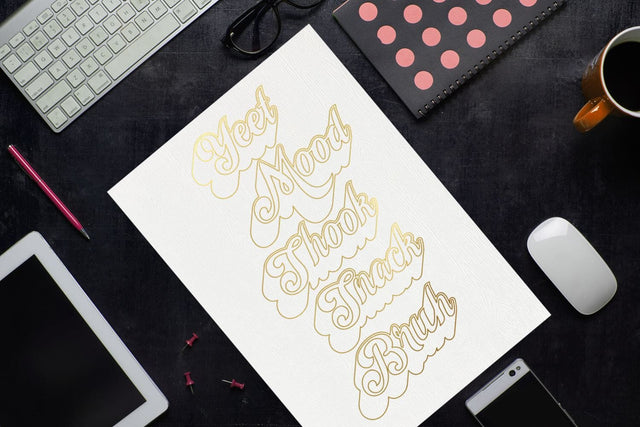 Yeet
Mood
Shook
Snack
Bruh